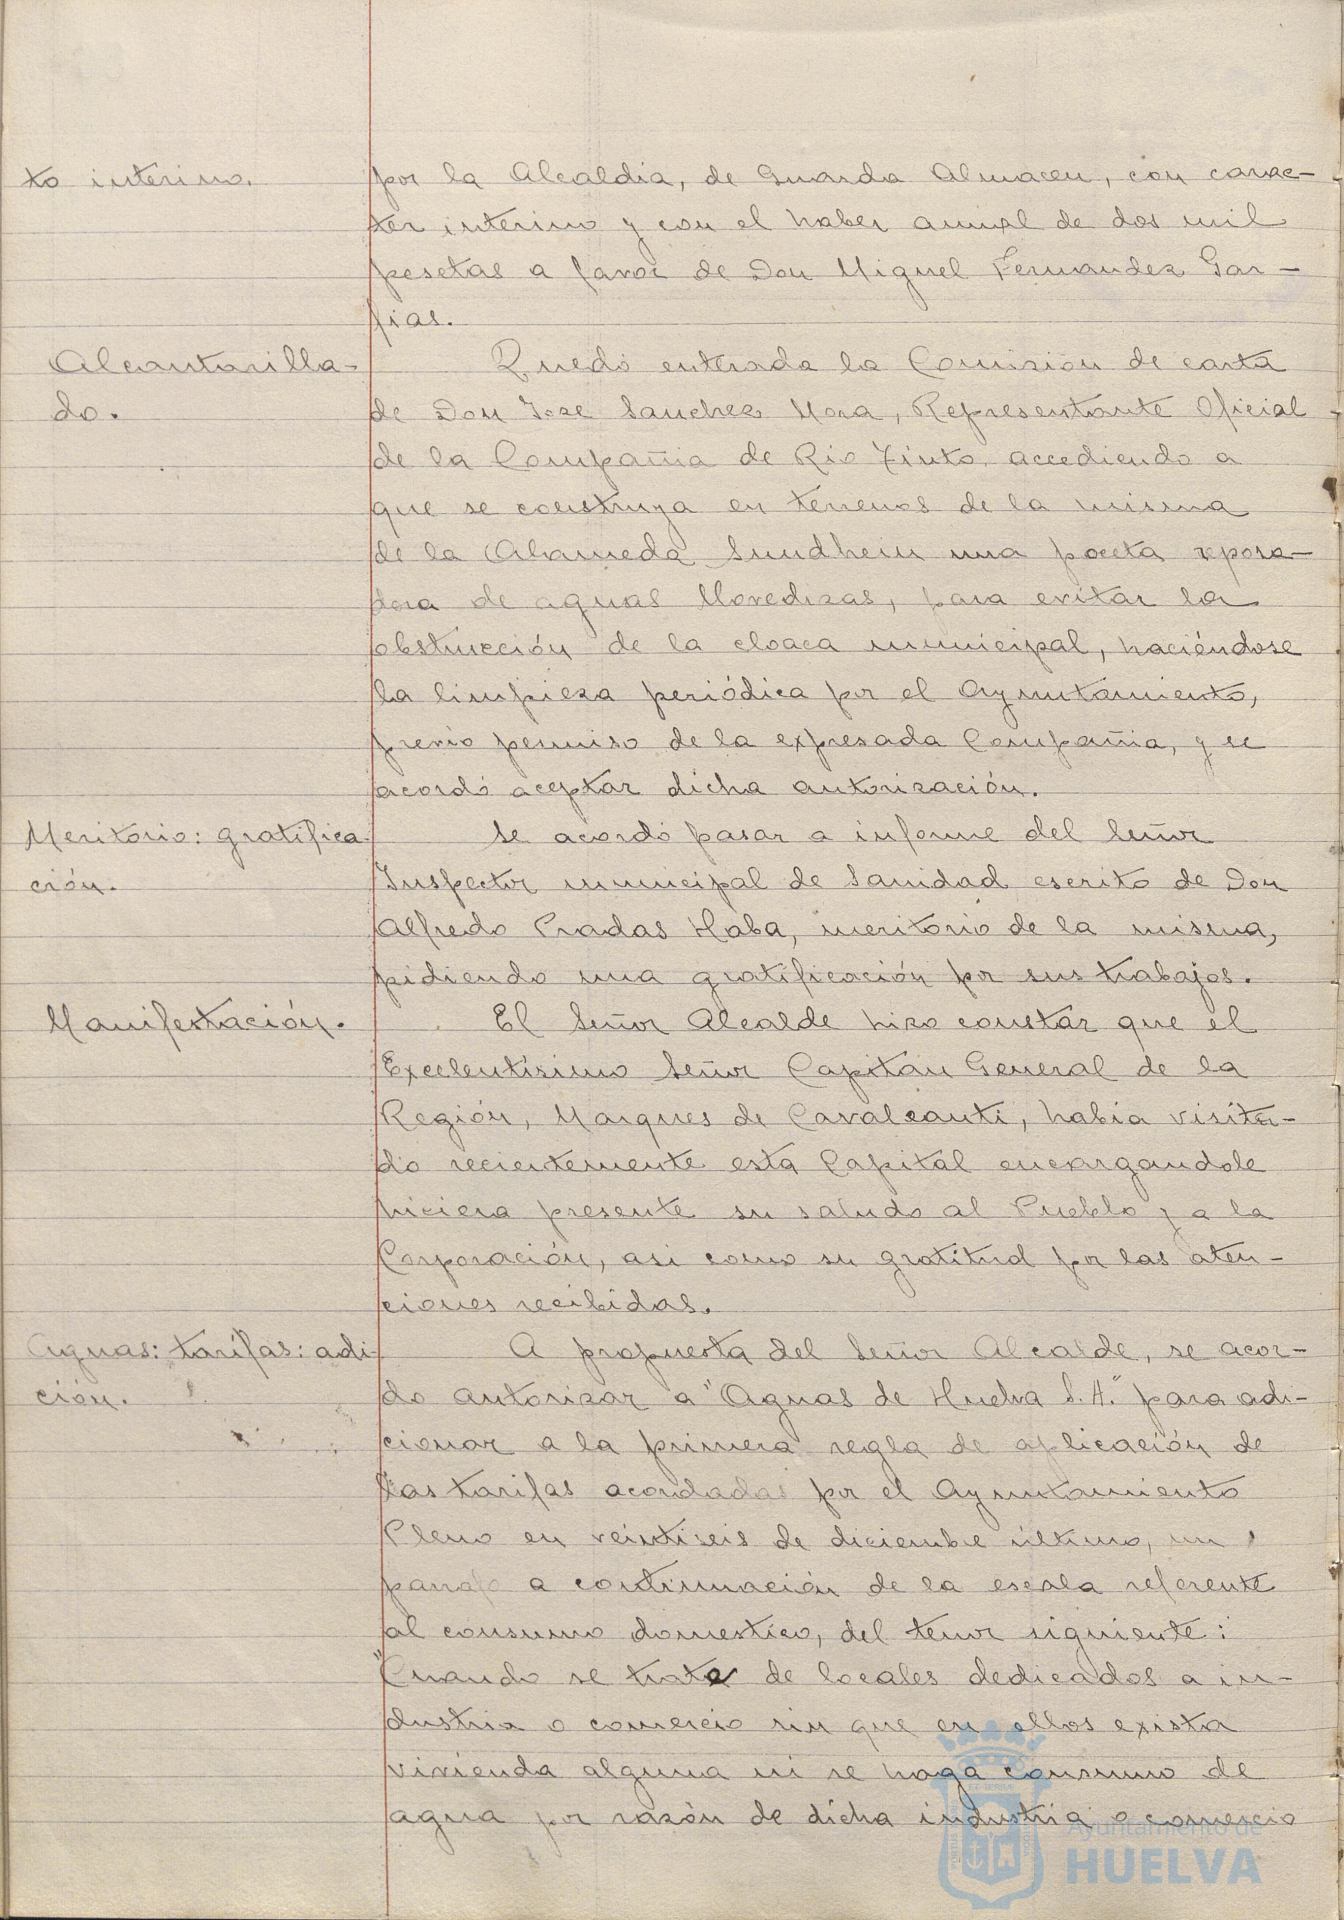 to interino.
por la Alcaldia, de Guarda Almacen, con carac-
ter interino y con el haber anual de dos mil
pesetas a favor de Don Miguel Fernandez Gar-
fias.
Alcantarilla-
do.
Quedó enterada la Comisión de carta
de Don Jose Sanchez Mora, Representante Oficial
de la Compañia de Rio Tinto, accediendo a
que se construya en terrenos de la misma
de la Alameda Sundhein una poceta repora-
dora de aguas llovedizas, para evitar la
obstrucción de la cloaca municipal, haciéndose
la limpieza periódica por el Ayuntamiento,
previo permiso de la expresada Compañia, y se
acordó aceptar dicha autorización.
Meritorio: gratifica-
ción.
Se acordó pasar a informe del Señor
Inspector municipal de Sanidad escrito de Don
Alfredo Pradas Haba, meritorio de la misma,
pidiendo una gratificación por sus trabajos.
Manifestación.
El Señor Alcalde hizo constar que el
Excelentísimo Señor Capitán General de la
Región, Marques de Cavalcanti, habia visita-
do recientemente esta Capital encargandole
hiciera presente su saludo al Pueblo y a la
Corporación, asi como su gratitud por las aten-
ciones recibidas.
Aguas: tarifas: adi-
ción.
A propuesta del Señor Alcalde, se acor-
do autorizar a "Aguas de Huelva S.A." para adi-
cionar a la primera regla de aplicación de
las tarifas acordadas por el Ayuntamiento
Pleno en veintiseis de diciembre último, un
parrafo a continuación de la escala referente
al consumo domestico, del tenor siguiente:
"Cuando se trate de locales dedicados a in-
dustria o comercio sin que en ellos exista
vivienda alguna ni se haga consumo de
agua por razón de dicha industria o comercio
Ayuntamiento de
HUELVA